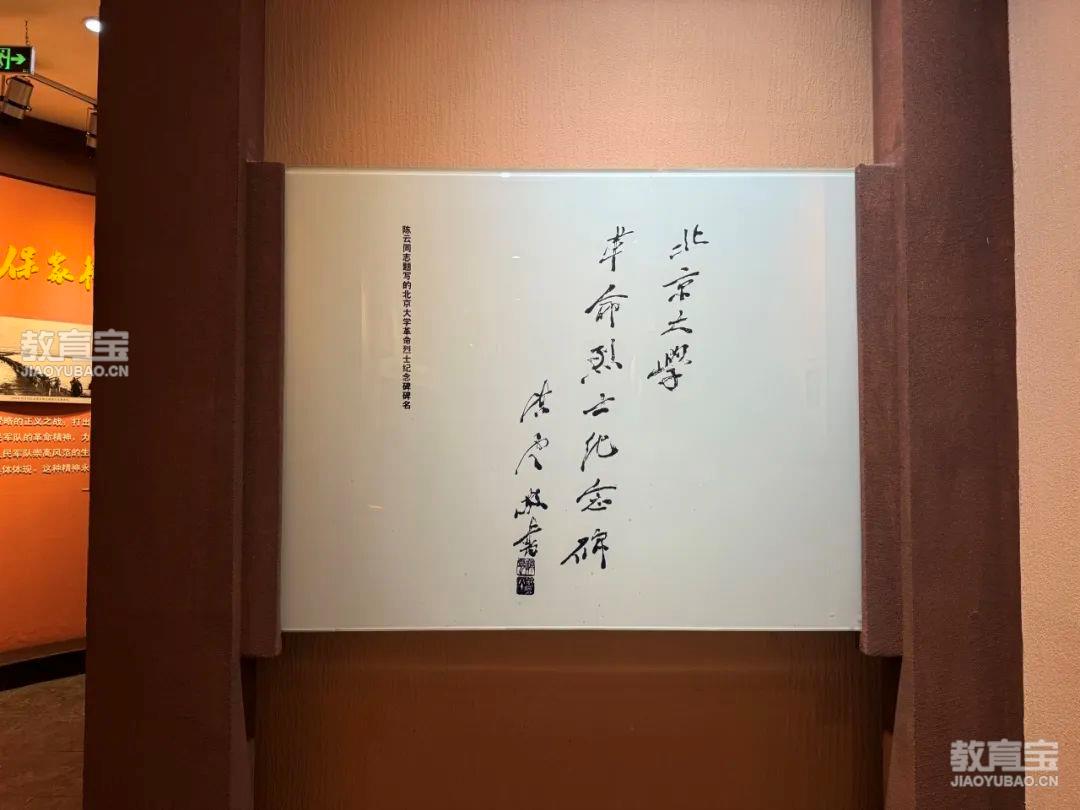 北京大學
革命烈士纪念碑
陈云敬书
陈云同志题写的北京大学革命烈士纪念碑碑名
保家
侵略的正义之战，打出
民军队的革命精神，为
人民军队崇高风范的生
具体体现。这种精神永
教育宝
JIAOYUBAO.CN
教育宝
JIAOYUBAO.CN